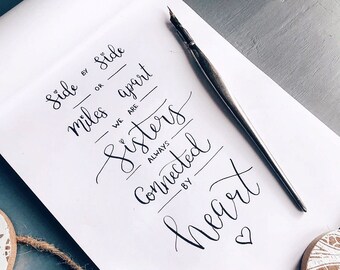 Side BY Side
OR
Miles apart
WE ARE
Sisters
ALWAYS
Connected
BY
heart